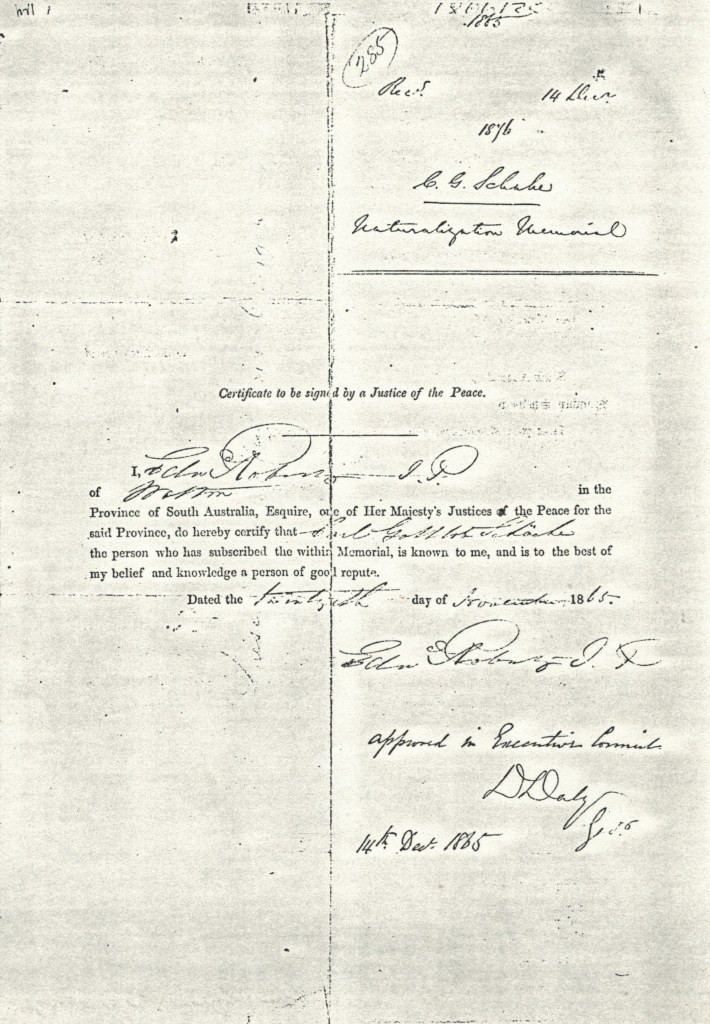 1865
285
Recd. 14 Decr.
1876
C. G. Schache
Naturalization Memorial
Certificate to be signed by a Justice of the Peace.
I, Edn J. P.
of in the
Province of South Australia, Esquire, one of Her Majesty's Justices of the Peace for the
said Province, do hereby certify that Carl Gottlob Schache
the person who has subscribed the within Memorial, is known to me, and is to the best of
my belief and knowledge a person of good repute.
Dated the twentyeth day of November 1865.
Edn J. P.
approved in Executive Council
D Daly
14th. Decr. 1865